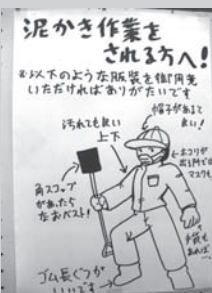 泥かき作業を
される方へ!
※以下のような服装を御用意
いただければありがたいです
帽子があると
良い!
汚れても良い
上下
←ホコリが
マスクも
角スコップ
があったら
なおベスト!
手袋も
あれば
ゴム長ぐつが
いいです→